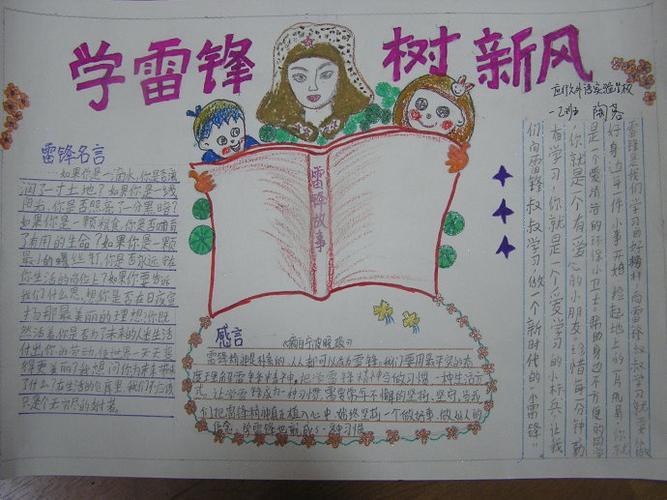 学雷锋 树新风
实验学校
陶务
雷锋名言
如果你是一滴水,你是否滋
润了一寸土地?如果你是一线
阳光,你是否照亮了一分黑暗?
如果你是一颗粮食,你是否哺育
了有用的生命?如果你是一颗
最小的螺丝钉,你是否永远在
你生活的岗位上?如果你要告诉
我们什么思想,你是否在日夜宣
扬那最美丽的理想?你既
然活着,你是否为了未来的人类生活
付出你的劳动,使世界一天天变
得更美丽?我想问你,为未来带来
了什么?在生活的仓库里,我们不应该
只是个无穷尽的支付者。
雷锋故事
感言
雷锋精神是朴素的,人人都可以成为雷锋。我们要用最平实的态
们把雷锋精神真正植入心中,始终坚持一个做好事,做好人的
信念,学雷锋也就成了一种习惯
雷锋是我们学习的好榜样,向雷锋叔叔学习就要从做
好身边每件小事开始,捡起地上的一片纸屑,你就
是一个爱清洁的环保小卫士;帮助身边不方便的同学
你就是一个有爱心的小朋友;珍惜每一分钟勤
奋学习,你就是一个爱学习的小标兵,让我
们向雷锋叔叔学习,做一个新时代的“小雷锋”